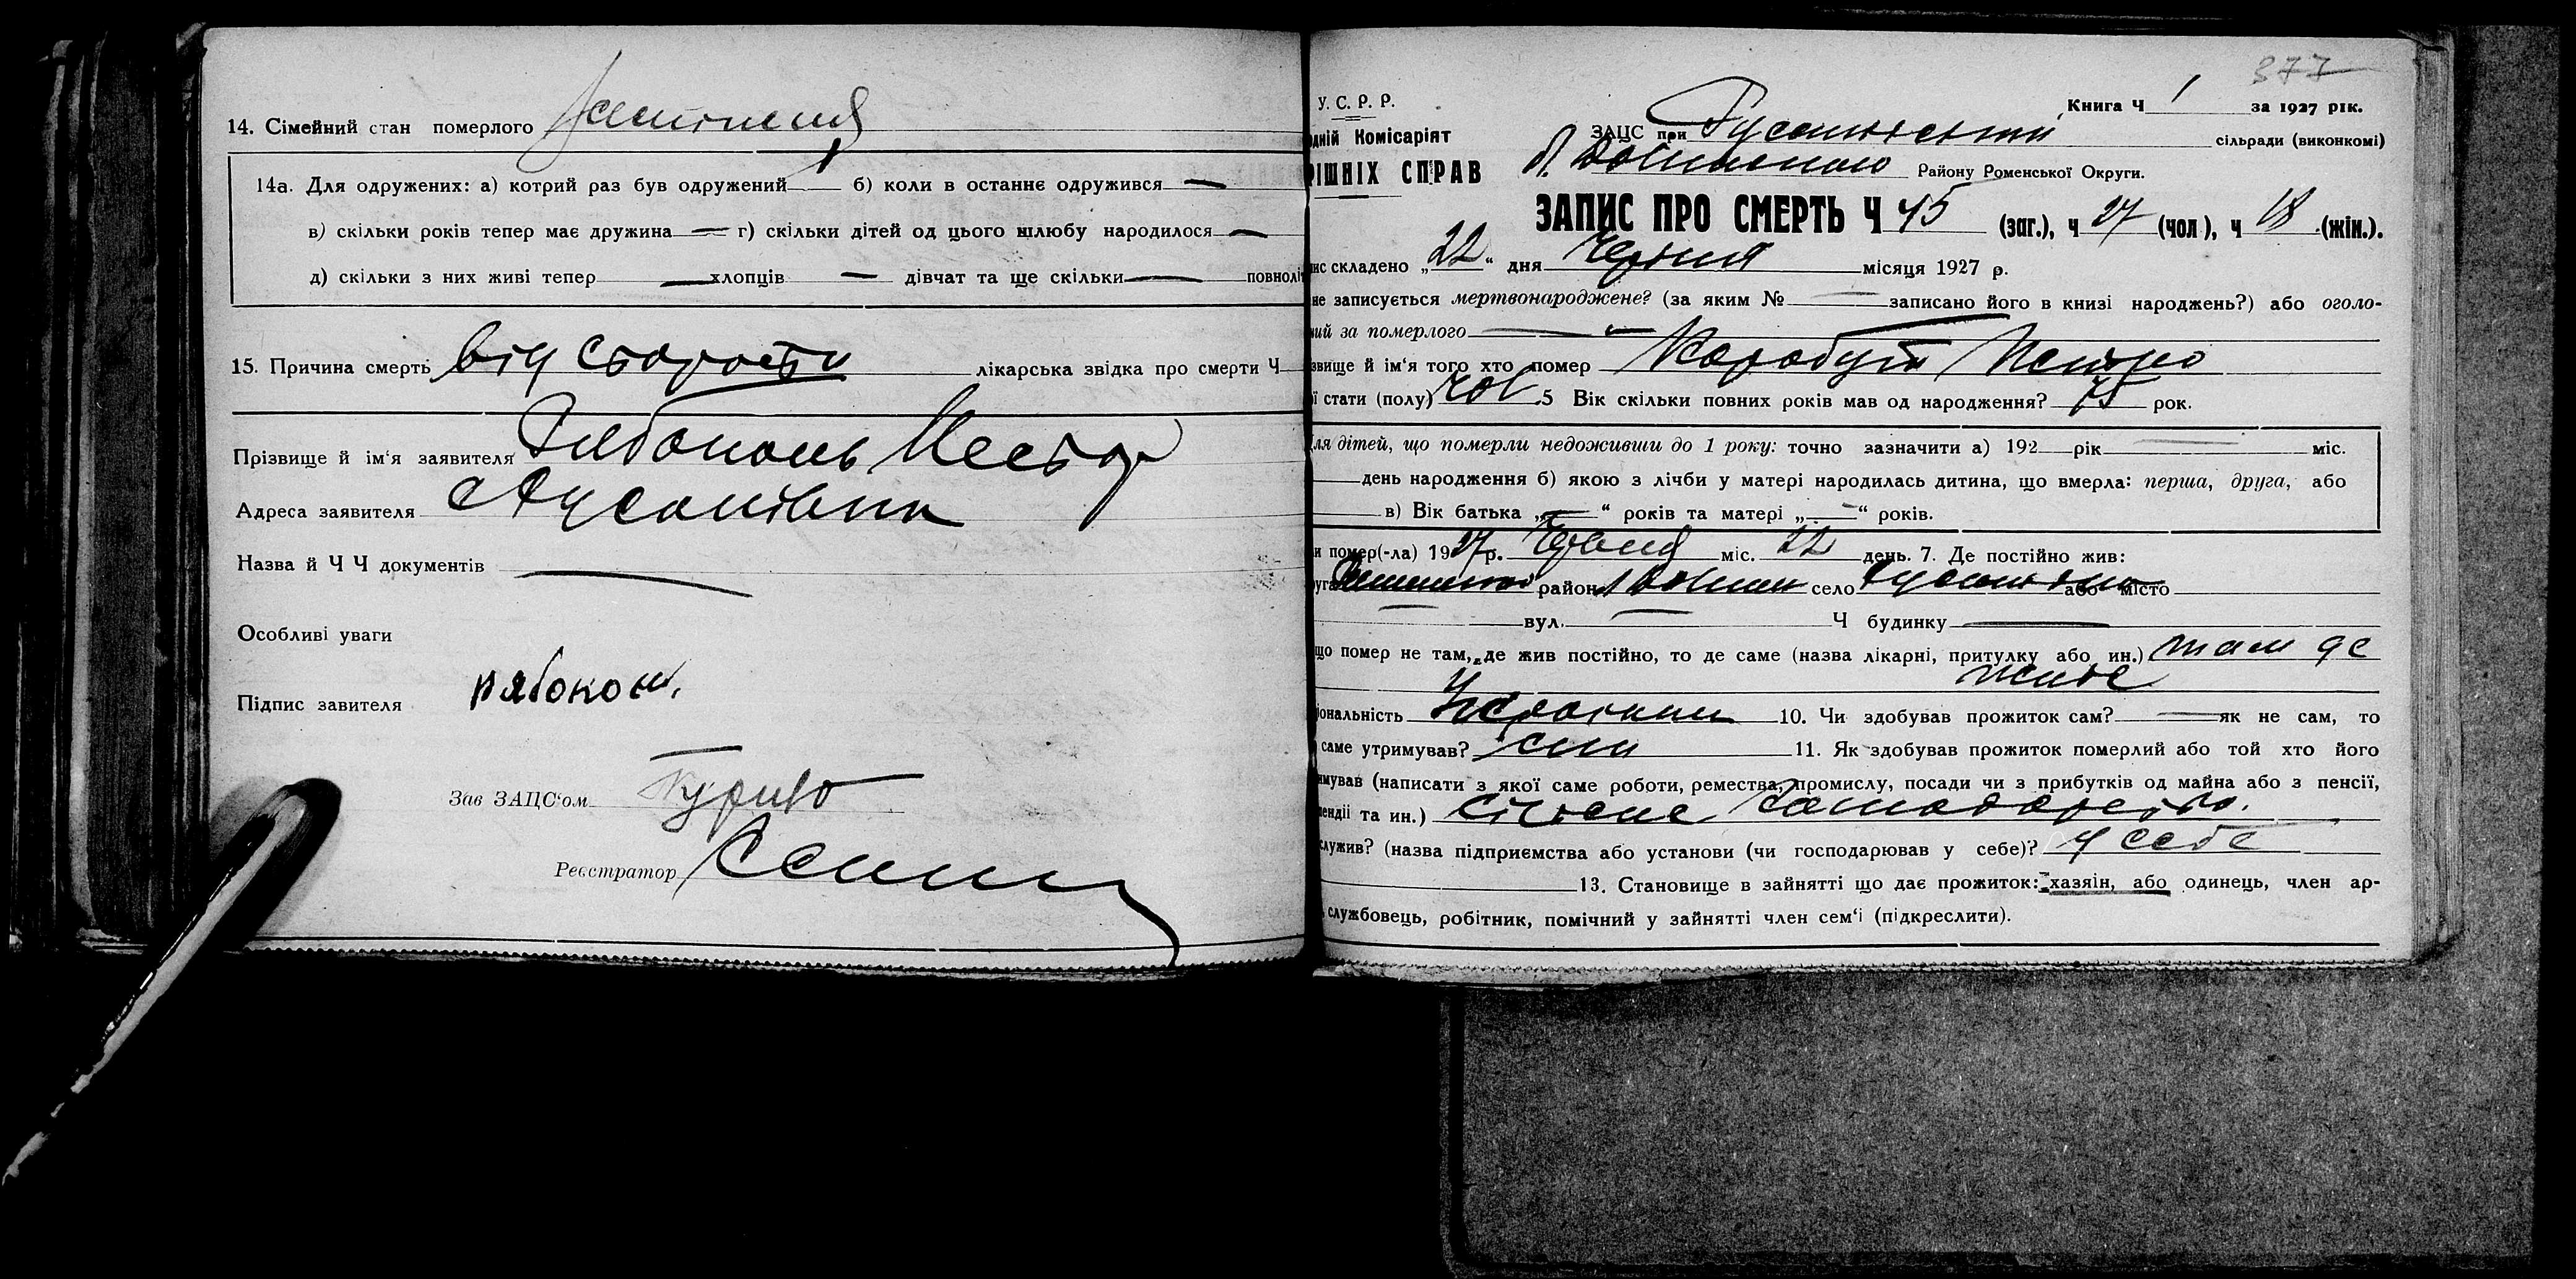 14. Сімейний стан померлого
14а. Для одружених: а) котрий раз був одружений — б) коли в останнє одружився —
в) скільки років тепер має дружина — г) скільки дітей од цього шлюбу народилося —
д) скільки з них живі тепер — хлопців — дівчат та ще скільки — повноліт
15. Причина смерть від старости лікарська звідка про смерти Ч
Прізвище й ім'я заявителя Рябоконь Нестор
Адреса заявителя с Русанівка
Назва й Ч Ч документів —
Особливі уваги
Підпис завителя Рябокон.
Зав ЗАЦС'ом
Реєстратор
377
У. С. Р. Р.
Книга Ч 1 за 1927 рік.
одній Комісаріят
ЗАЦС при Русанівській сільради (виконкомі)
РІШНІХ СПРАВ
Л. Долинського Району Роменської Округи.
ЗАПИС ПРО СМЕРТЬ Ч 45 (заг.), ч 27 (чол), ч 18 (жін.).
ис складено „22“ дня Червня місяця 1927 р.
не записується мертвонароджене? (за яким № — записано його в книзі народжень?) або оголо-
ний за померлого —
звище й ім'я того хто помер Коробут Петро
ї стати (полу) чол 5 Вік скільки повних років мав од народження? 75 рок.
Для дітей, що померли недоживши до 1 року: точно зазначити а) 192 рік — міс.
день народження б) якою з лічби у матері народилась дитина, що вмерла: перша, друга, або
в) Вік батька „—“ років та матері „—“ років.
и помер(-ла) 1927р. Червня міс. 22 день. 7. Де постійно жив:
уга Роменської район Л Долин село Русанівка або місто
вул. — Ч будинку —
що помер не там, де жив постійно, то де саме (назва лікарні, притулку або ин.) там де
живе
іональність Українец 10. Чи здобував прожиток сам? — як не сам, то
саме утримував? син 11. Як здобував прожиток померлий або той хто його
имував (написати з якої саме роботи, ремества, промислу, посади чи з прибутків од майна або з пенсії,
пендії та ин.) сільське господарство.
служив? (назва підприємства або установи (чи господарював у себе)? у себе
13. Становище в зайнятті що дає прожиток: хазяін, або одинець, член ар-
службовець, робітник, помічний у зайнятті член сем'ї (підкреслити).